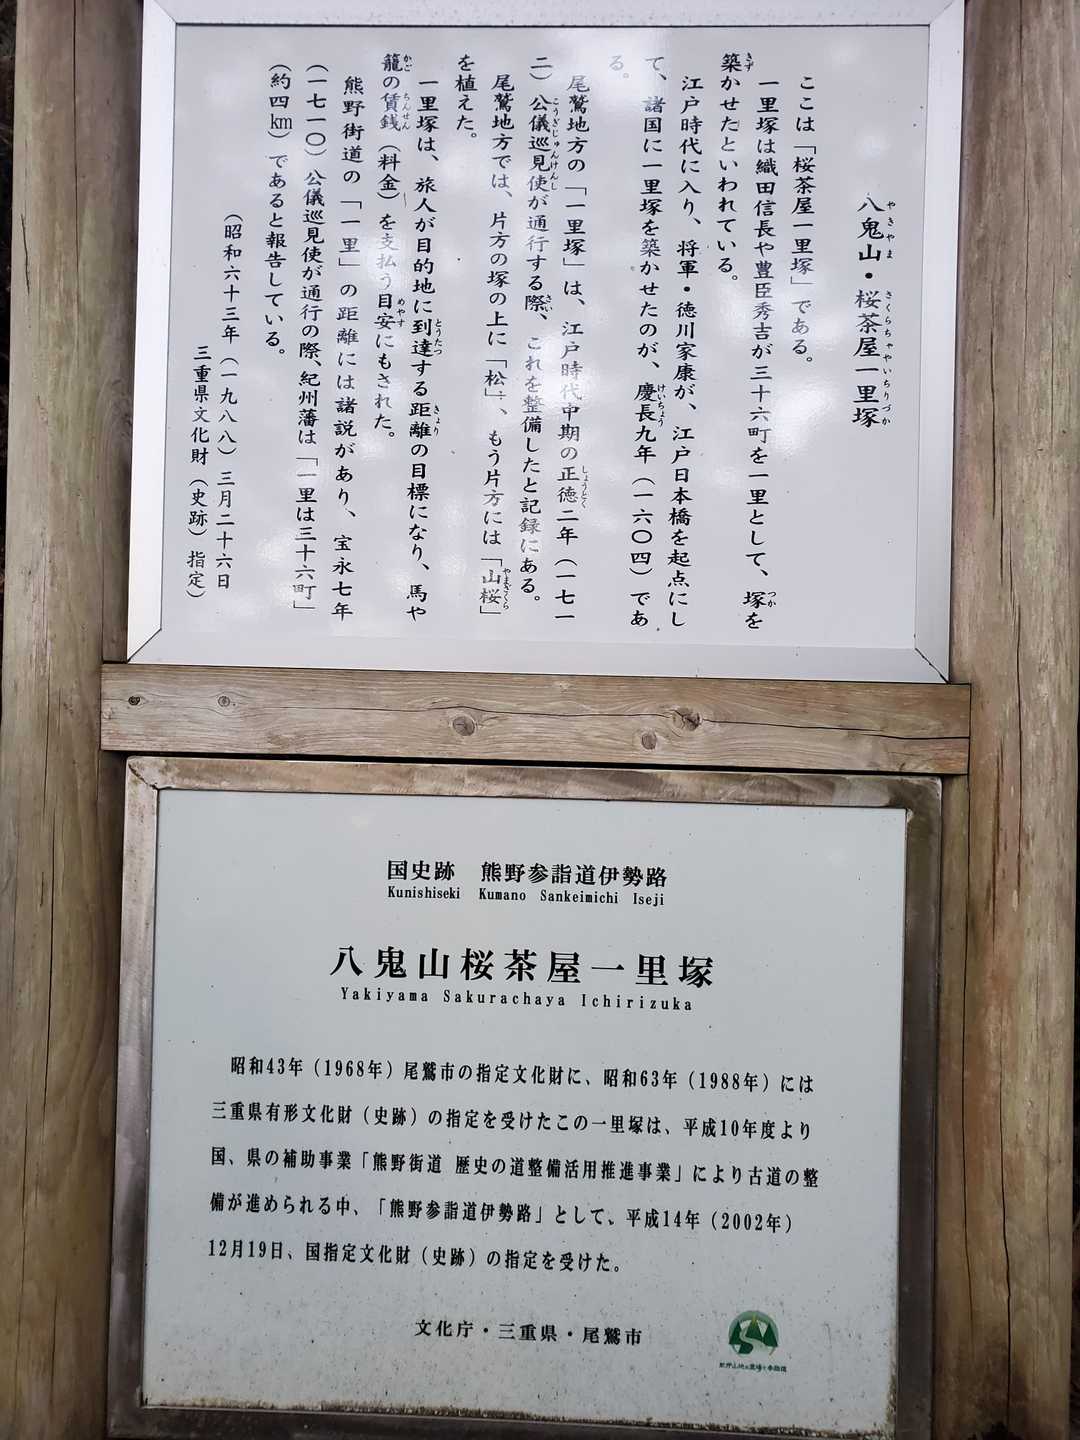 八鬼山・桜茶屋一里塚
やきやま さくらちゃやいちりづか
ここは「桜茶屋一里塚」である。
一里塚は織田信長や豊臣秀吉が三十六町を一里として、塚を
つか
築かせたといわれている。
きず
江戸時代に入り、将軍・徳川家康が、江戸日本橋を起点にし
て、諸国に一里塚を築かせたのが、慶長九年（一六〇四）であ
けいちょう
る。
尾鷲地方の「一里塚」は、江戸時代中期の正徳二年（一七一
しょうとく
二）公儀巡見使が通行する際、これを整備したと記録にある。
こうぎじゅんけんし さい
尾鷲地方では、片方の塚の上に「松」、もう片方には「山桜」
やまざくら
を植えた。
一里塚は、旅人が目的地に到達する距離の目標になり、馬や
とうたつ きょり
籠の賃銭（料金）を支払う目安にもされた。
かご ちんせん めやす
熊野街道の「一里」の距離には諸説があり、宝永七年
（一七一〇）公儀巡見使が通行の際、紀州藩は「一里は三十六町」
（約四㎞）であると報告している。
（昭和六十三年（一九八八）三月二十六日
三重県文化財（史跡）指定）
国史跡 熊野参詣道伊勢路
Kunishiseki Kumano Sankeimichi Iseji
八鬼山桜茶屋一里塚
Yakiyama Sakurachaya Ichirizuka
昭和43年（1968年）尾鷲市の指定文化財に、昭和63年（1988年）には
三重県有形文化財（史跡）の指定を受けたこの一里塚は、平成10年度より
国、県の補助事業「熊野街道 歴史の道整備活用推進事業」により古道の整
備が進められる中、「熊野参詣道伊勢路」として、平成14年（2002年）
12月19日、国指定文化財（史跡）の指定を受けた。
文化庁・三重県・尾鷲市